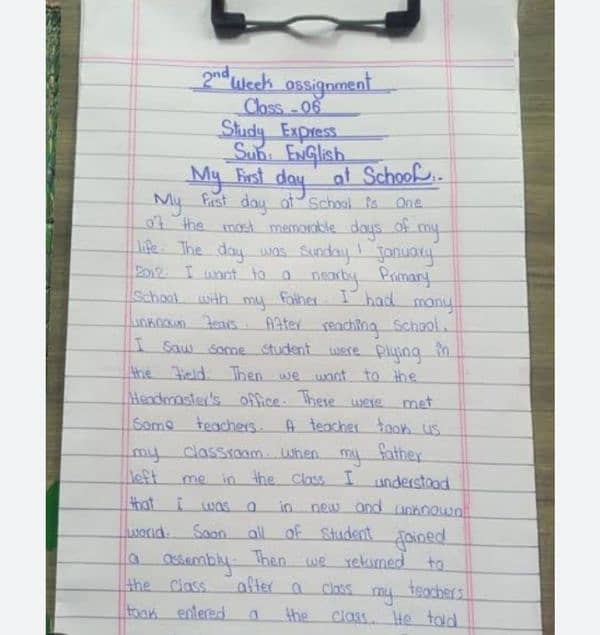 2nd Week assignment
Class - 06
Study Express
Sub: English
My First day at School.
My First day at School is One
of the most memorable days of my
life. The day was Sunday 1 January
2012. I want to a nearby Primary
School with my Father. I had many
unknown Fears. After reaching School.
I Saw some student were Plying in
the Field. Then we want to the
Headmaster's office. There were met
Some teachers. A teacher took us
my classroom. when my father
left me in the class I understood
that I was a in new and unknown
world. Soon all of Student joined
a assembly. Then we returned to
the class after a class my teachers
took entered a the class. He told